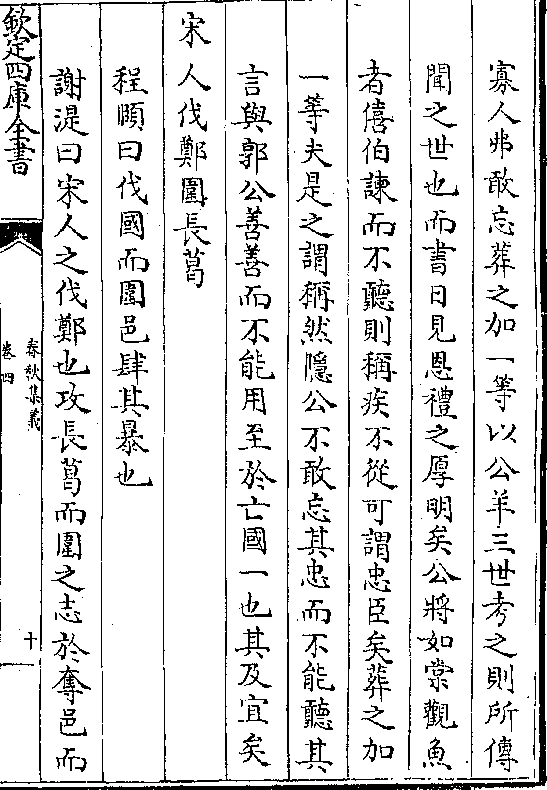 寡人弗敢忘葬之加一等以公羊三世考之則所傳
聞之世也而書日見恩禮之厚明矣公將如棠觀魚
者僖伯諫而不聽則稱疾不從可謂忠臣矣葬之加
一等夫是之謂稱然隱公不敢忘其忠而不能聽其
言與郭公善善而不能用至於亡國一也其及宜矣
宋人伐鄭圍長葛
程頤曰伐國而圍邑肆其暴也
謝湜曰宋人之伐鄭也攻長葛而圍之志於奪邑而
欽定四庫全書
春秋集義
卷四
十